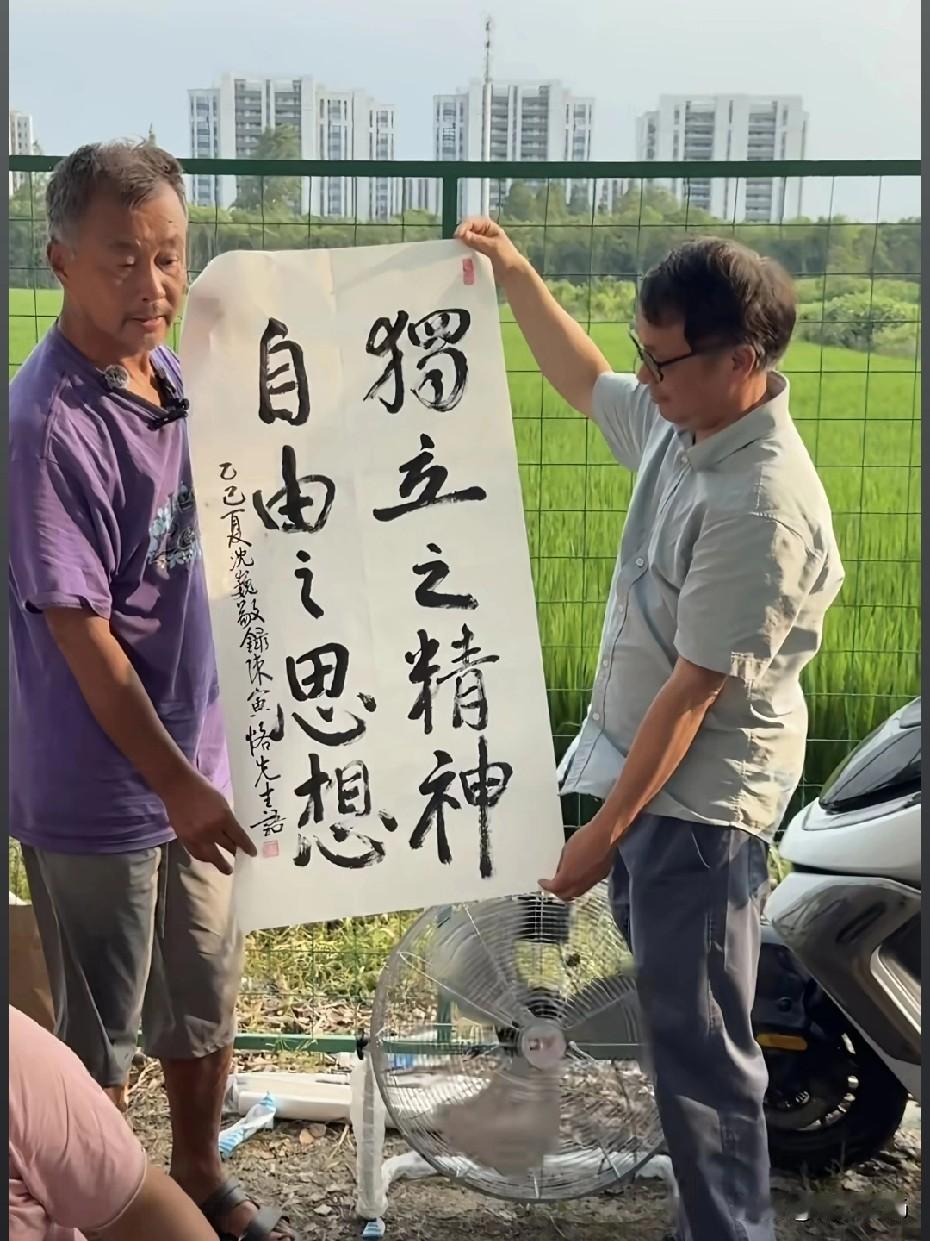 獨立之精神
自由之思想
乙巳夏沈巍敬録陳寅恪先生語